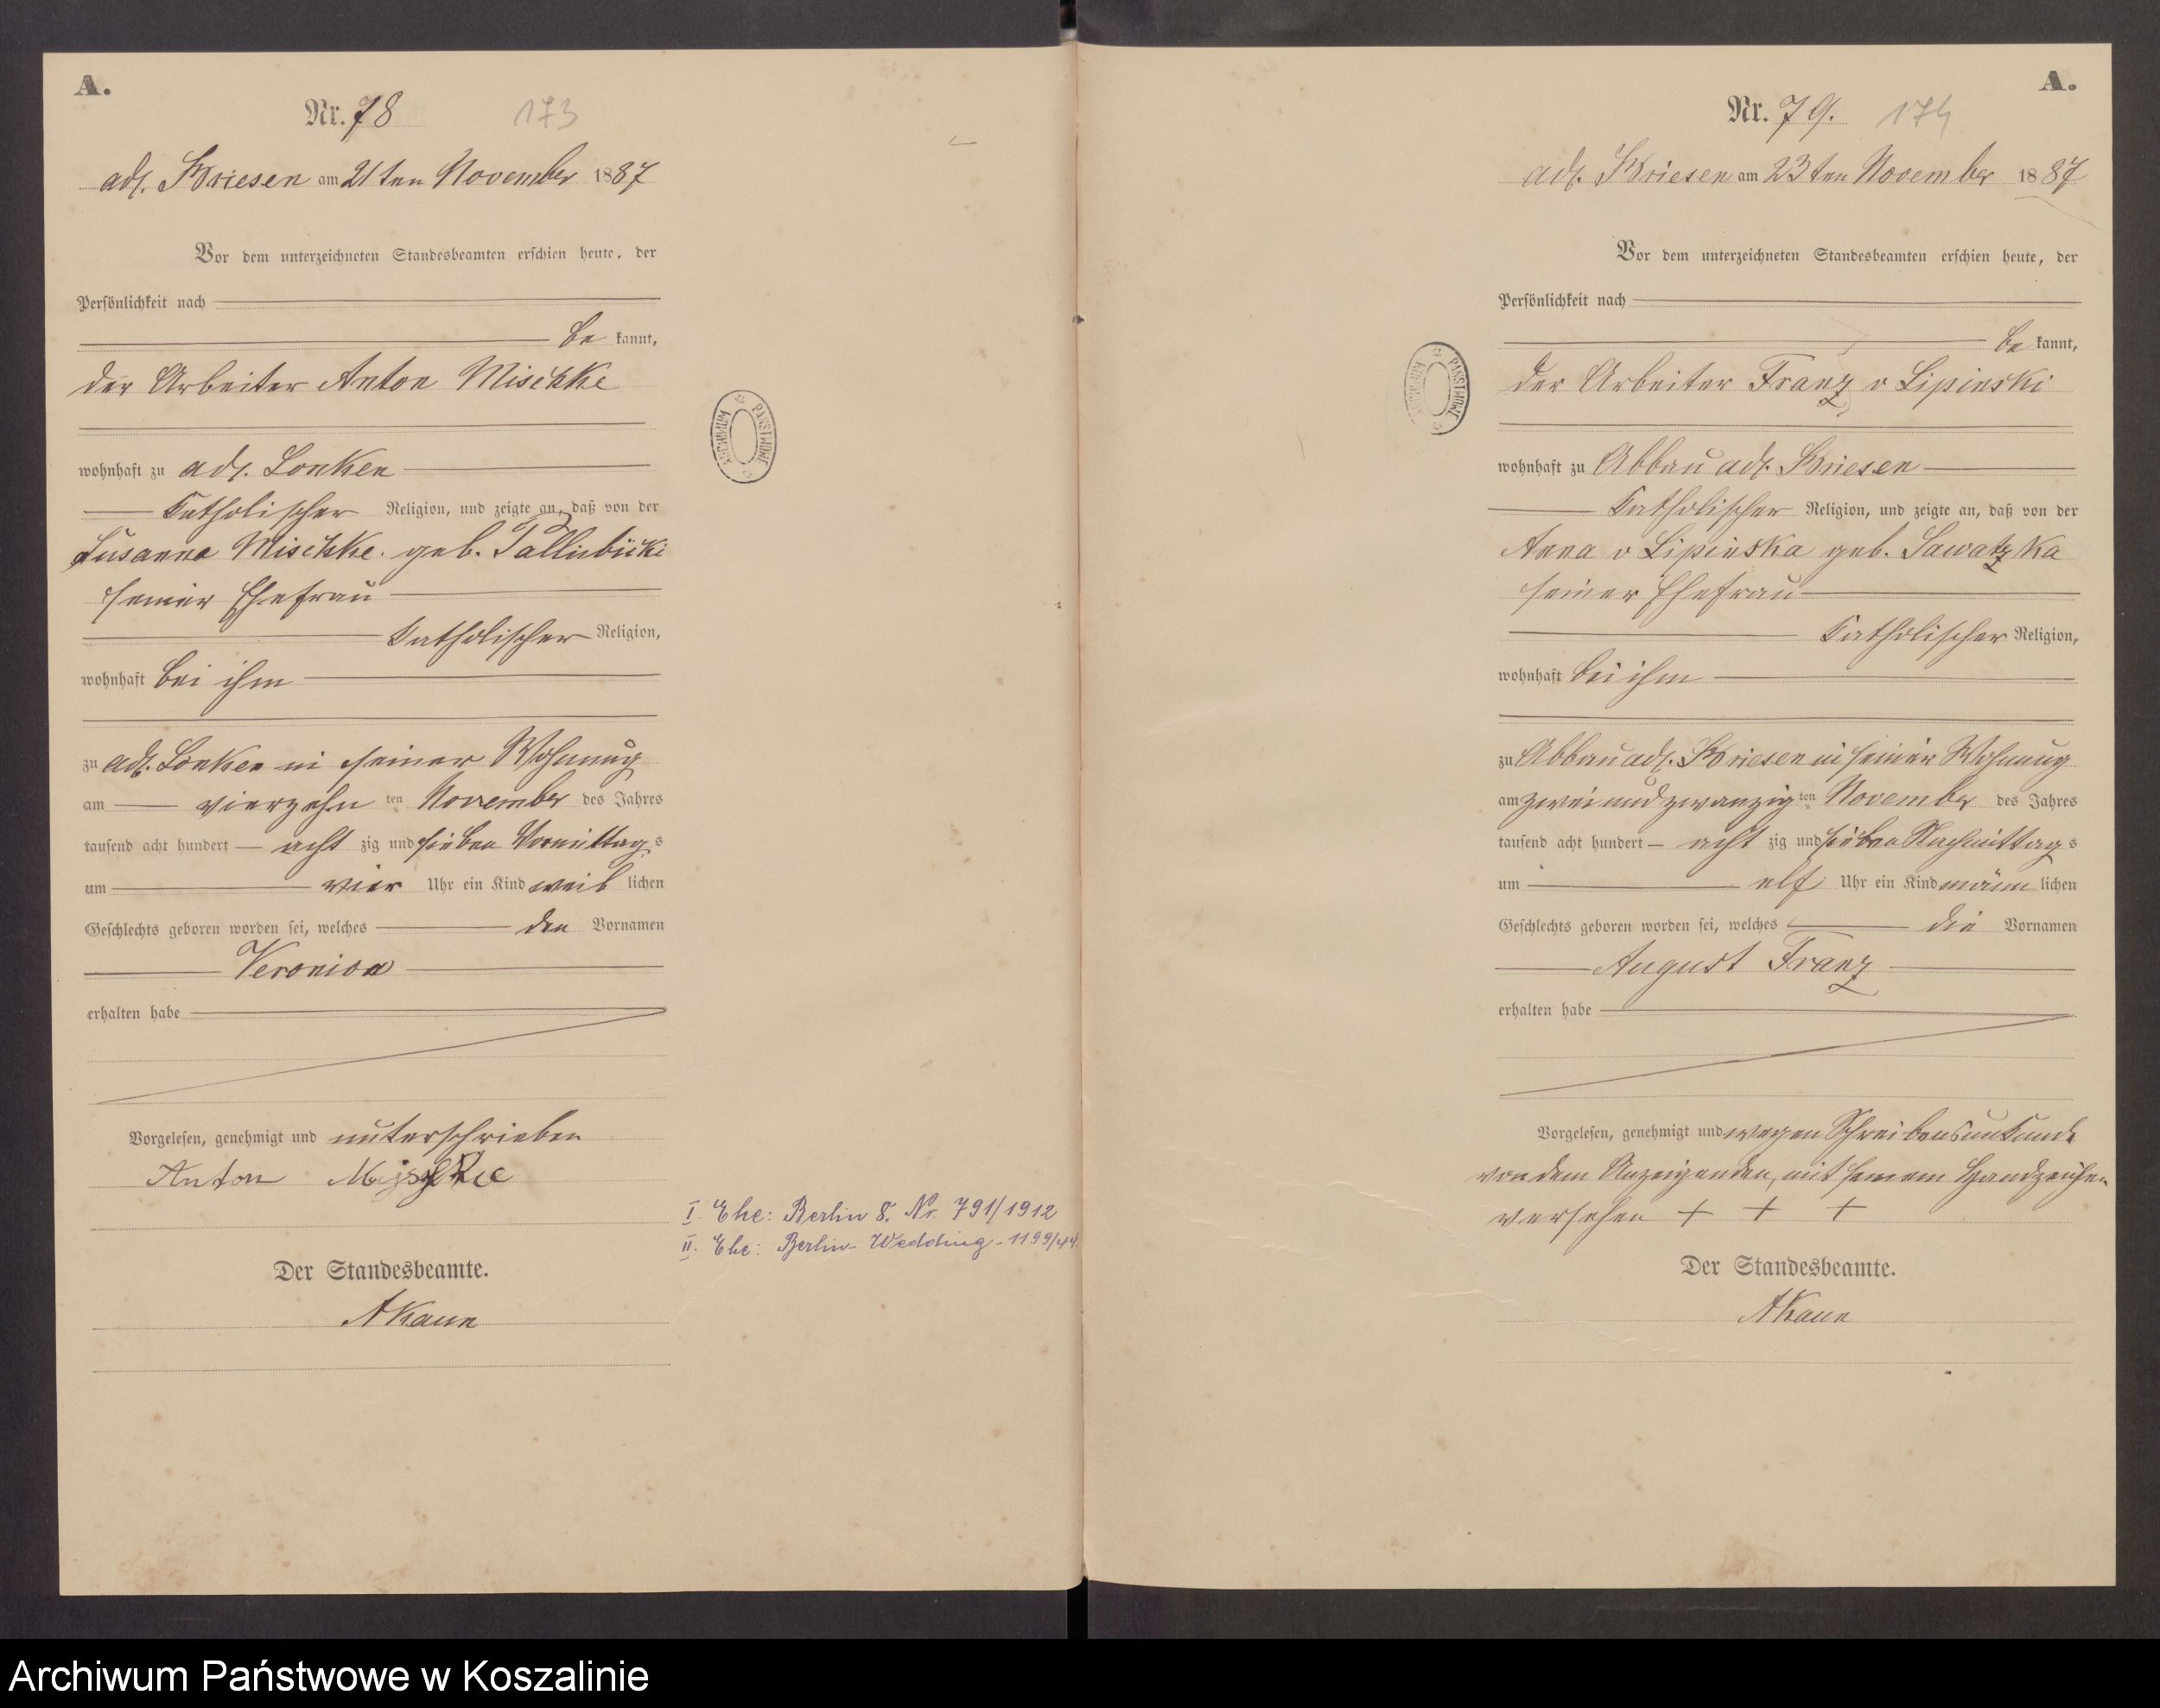 A.
Nr. 78 173
adl. Briesen am 21ten November 1887
Vor dem unterzeichneten Standesbeamten erschien heute, der
Persönlichkeit nach
be kannt,
der Arbeiter Anton Mischke
wohnhaft zu adl. Lonken
Katholischer Religion, und zeigte an, daß von der
Susanna Mischke geb.
seiner Ehefrau
Katholischer Religion,
wohnhaft bei ihm
zu adl. Lonken in seiner Wohnung
am vierzehn ten November des Jahres
tausend acht hundert acht zig und sieben Vormittag s
um vier Uhr ein Kind weib lichen
Geschlechts geboren worden sei, welches den Vornamen
Veronica
erhalten habe
Vorgelesen, genehmigt und unterschrieben
Anton
I. Ehe: Berlin 8. Nr. 791/1912
II. Ehe: Berlin-Wedding-1199/44.
Der Standesbeamte.
AKaun
ARCHIWUM PAŃSTWOWE
A.
Nr. 79. 174
adl. Briesen am 23ten November 1887
Vor dem unterzeichneten Standesbeamten erschien heute, der
Persönlichkeit nach
be kannt,
der Arbeiter Franz v Lipinski
wohnhaft zu Abbau adl. Briesen
Katholischer Religion, und zeigte an, daß von der
Anna v Lipinska geb. Sawatzka
seiner Ehefrau
Katholischer Religion,
wohnhaft bei ihm
zu Abbau adl. Briesen in seiner Wohnung
am zwei und zwanzig ten November des Jahres
tausend acht hundert acht zig und sieben Nachmittag s
um elf Uhr ein Kind männ lichen
Geschlechts geboren worden sei, welches die Vornamen
August Franz
erhalten habe
Vorgelesen, genehmigt und wegen Schreibensunkunde
von dem Anzeigenden, mit seinem Handzeichen
versehen + + +
Der Standesbeamte.
AKaun
ARCHIWUM PAŃSTWOWE
Archiwum Państwowe w Koszalinie